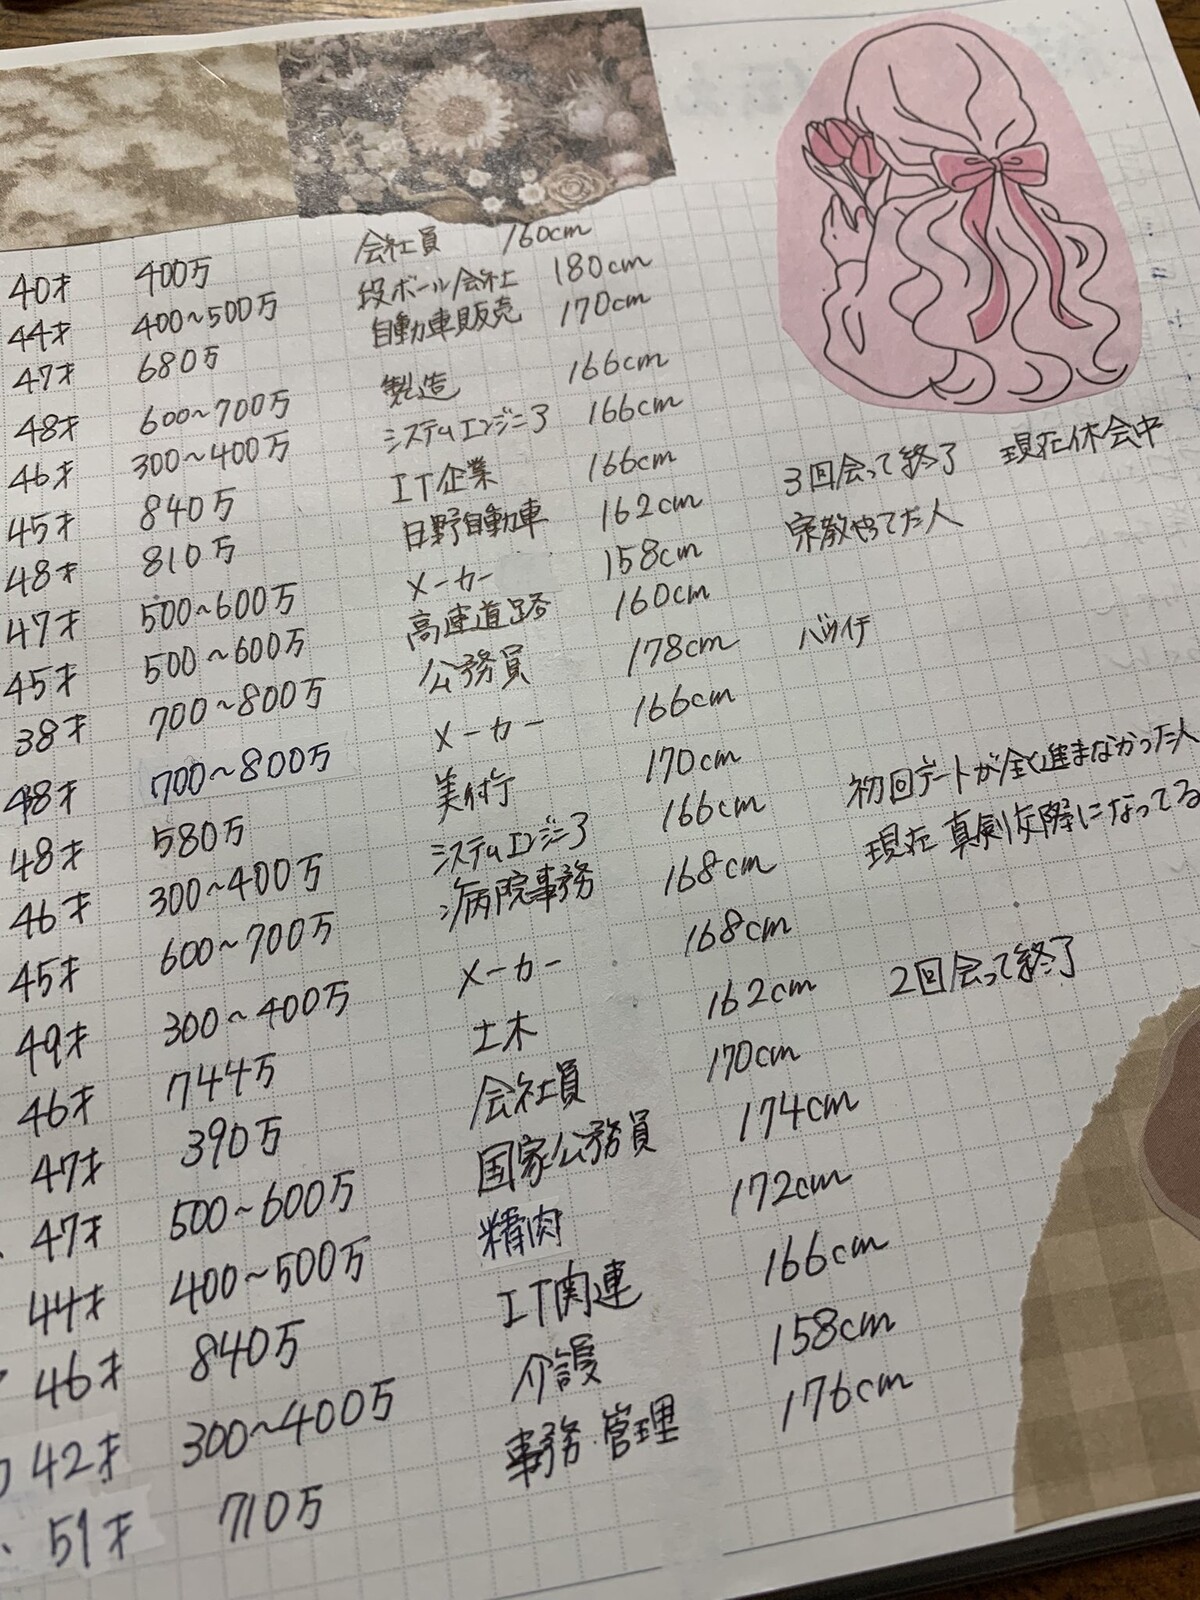 40才 400万 会社員 160cm
44才 400~500万 段ボール会社 180cm
47才 680万 自動車販売 170cm
48才 600~700万 製造 166cm
46才 300~400万 システムエンジニア 166cm
45才 840万 IT企業 166cm
48才 810万 日野自動車 162cm 3回会って終了 現在休会中
47才 500~600万 メーカー 158cm 宗教やってた人
45才 500~600万 高速道路 160cm
38才 700~800万 公務員 178cm バツイチ
48才 700~800万 メーカー 166cm
48才 580万 170cm
46才 300~400万 システムエンジニア 166cm 初回デートが全く進まなかった人
45才 600~700万 病院事務 168cm 現在 真剣交際になってる
49才 300~400万 メーカー 168cm
46才 744万 土木 162cm 2回会って終了
47才 390万 会社員 170cm
47才 500~600万 国家公務員 174cm
44才 400~500万 精肉 172cm
46才 840万 IT関連 166cm
42才 300~400万 介護 158cm
51才 710万 事務・管理 176cm